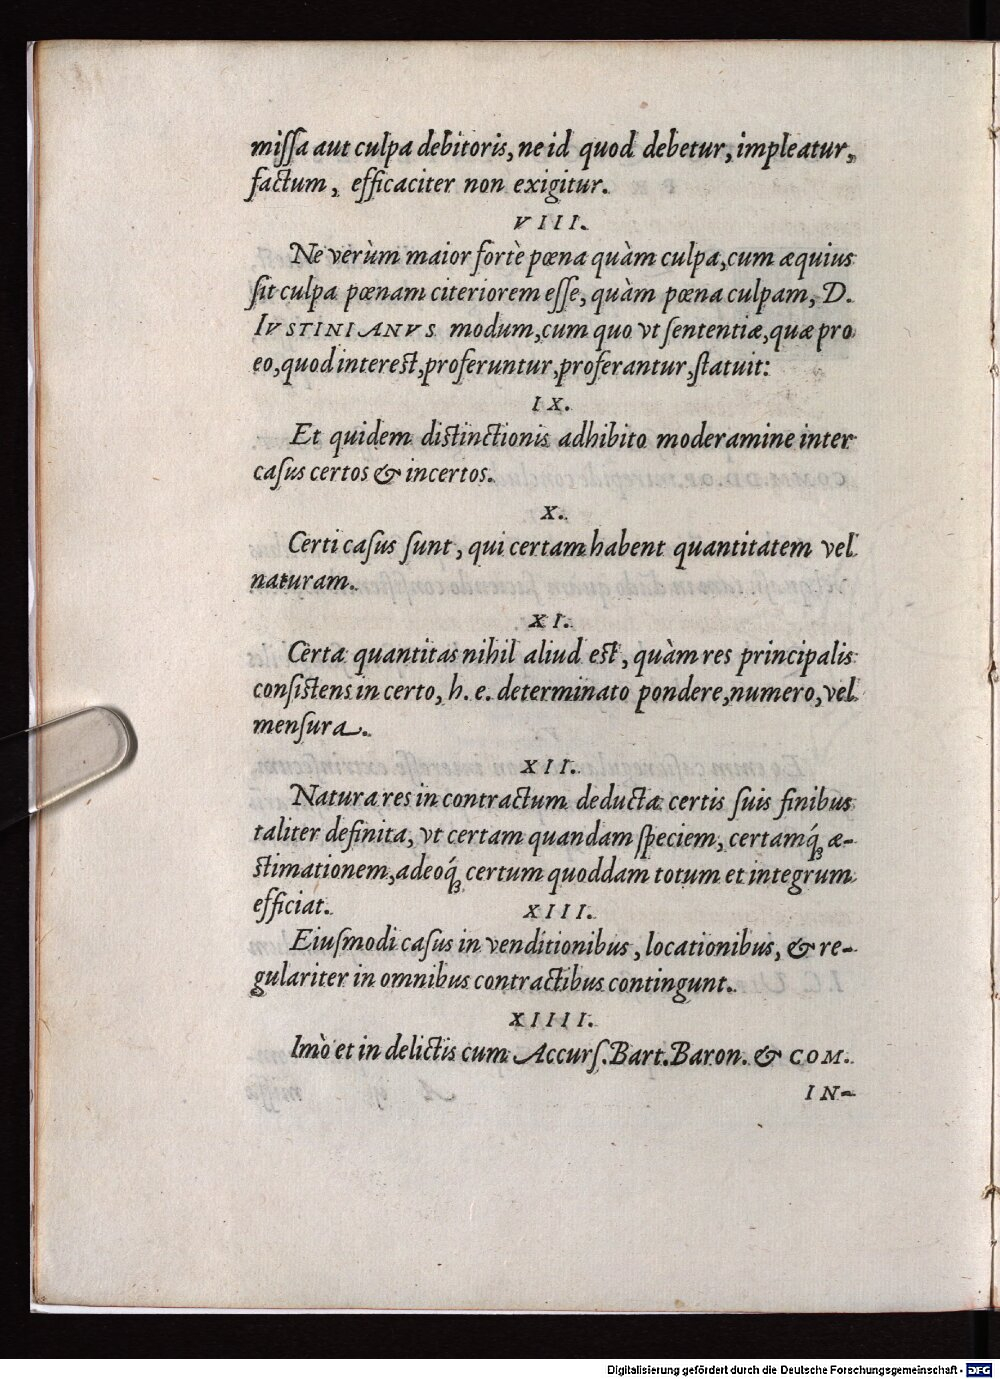 miſſa aut culpa debitoris, ne id quod debetur, impleatur,
factum, efficaciter non exigitur.
VIII.
Ne verùm maior fortè pœna quàm culpa, cum æquius
ſit culpa pœnam citeriorem eſſe, quàm pœna culpam, D.
IVSTINIANVS modum, cum quo vt ſententiæ, quæ pro
eo, quod intereſt, proferuntur, proferantur, ſtatuit:
IX.
Et quidem diſtinctionis adhibito moderamine inter
caſus certos & incertos.
X.
Certi caſus ſunt, qui certam habent quantitatem vel
naturam.
XI.
Certa quantitas nihil aliud eſt, quàm res principalis
conſiſtens in certo, h. e. determinato pondere, numero, vel
menſura.
XII.
Natura res in contractum deducta certis ſuis finibus
taliter definita, vt certam quandam ſpeciem, certamq́; æ-
ſtimationem, adeoq́; certum quoddam totum et integrum
efficiat.
XIII.
Eiuſmodi caſus in venditionibus, locationibus, & re-
gulariter in omnibus contractibus contingunt.
XIIII.
Imò et in delictis cum Accurſ. Bart. Baron. & COM.
IN-
Digitalisierung gefördert durch die Deutsche Forschungsgemeinschaft - DFG